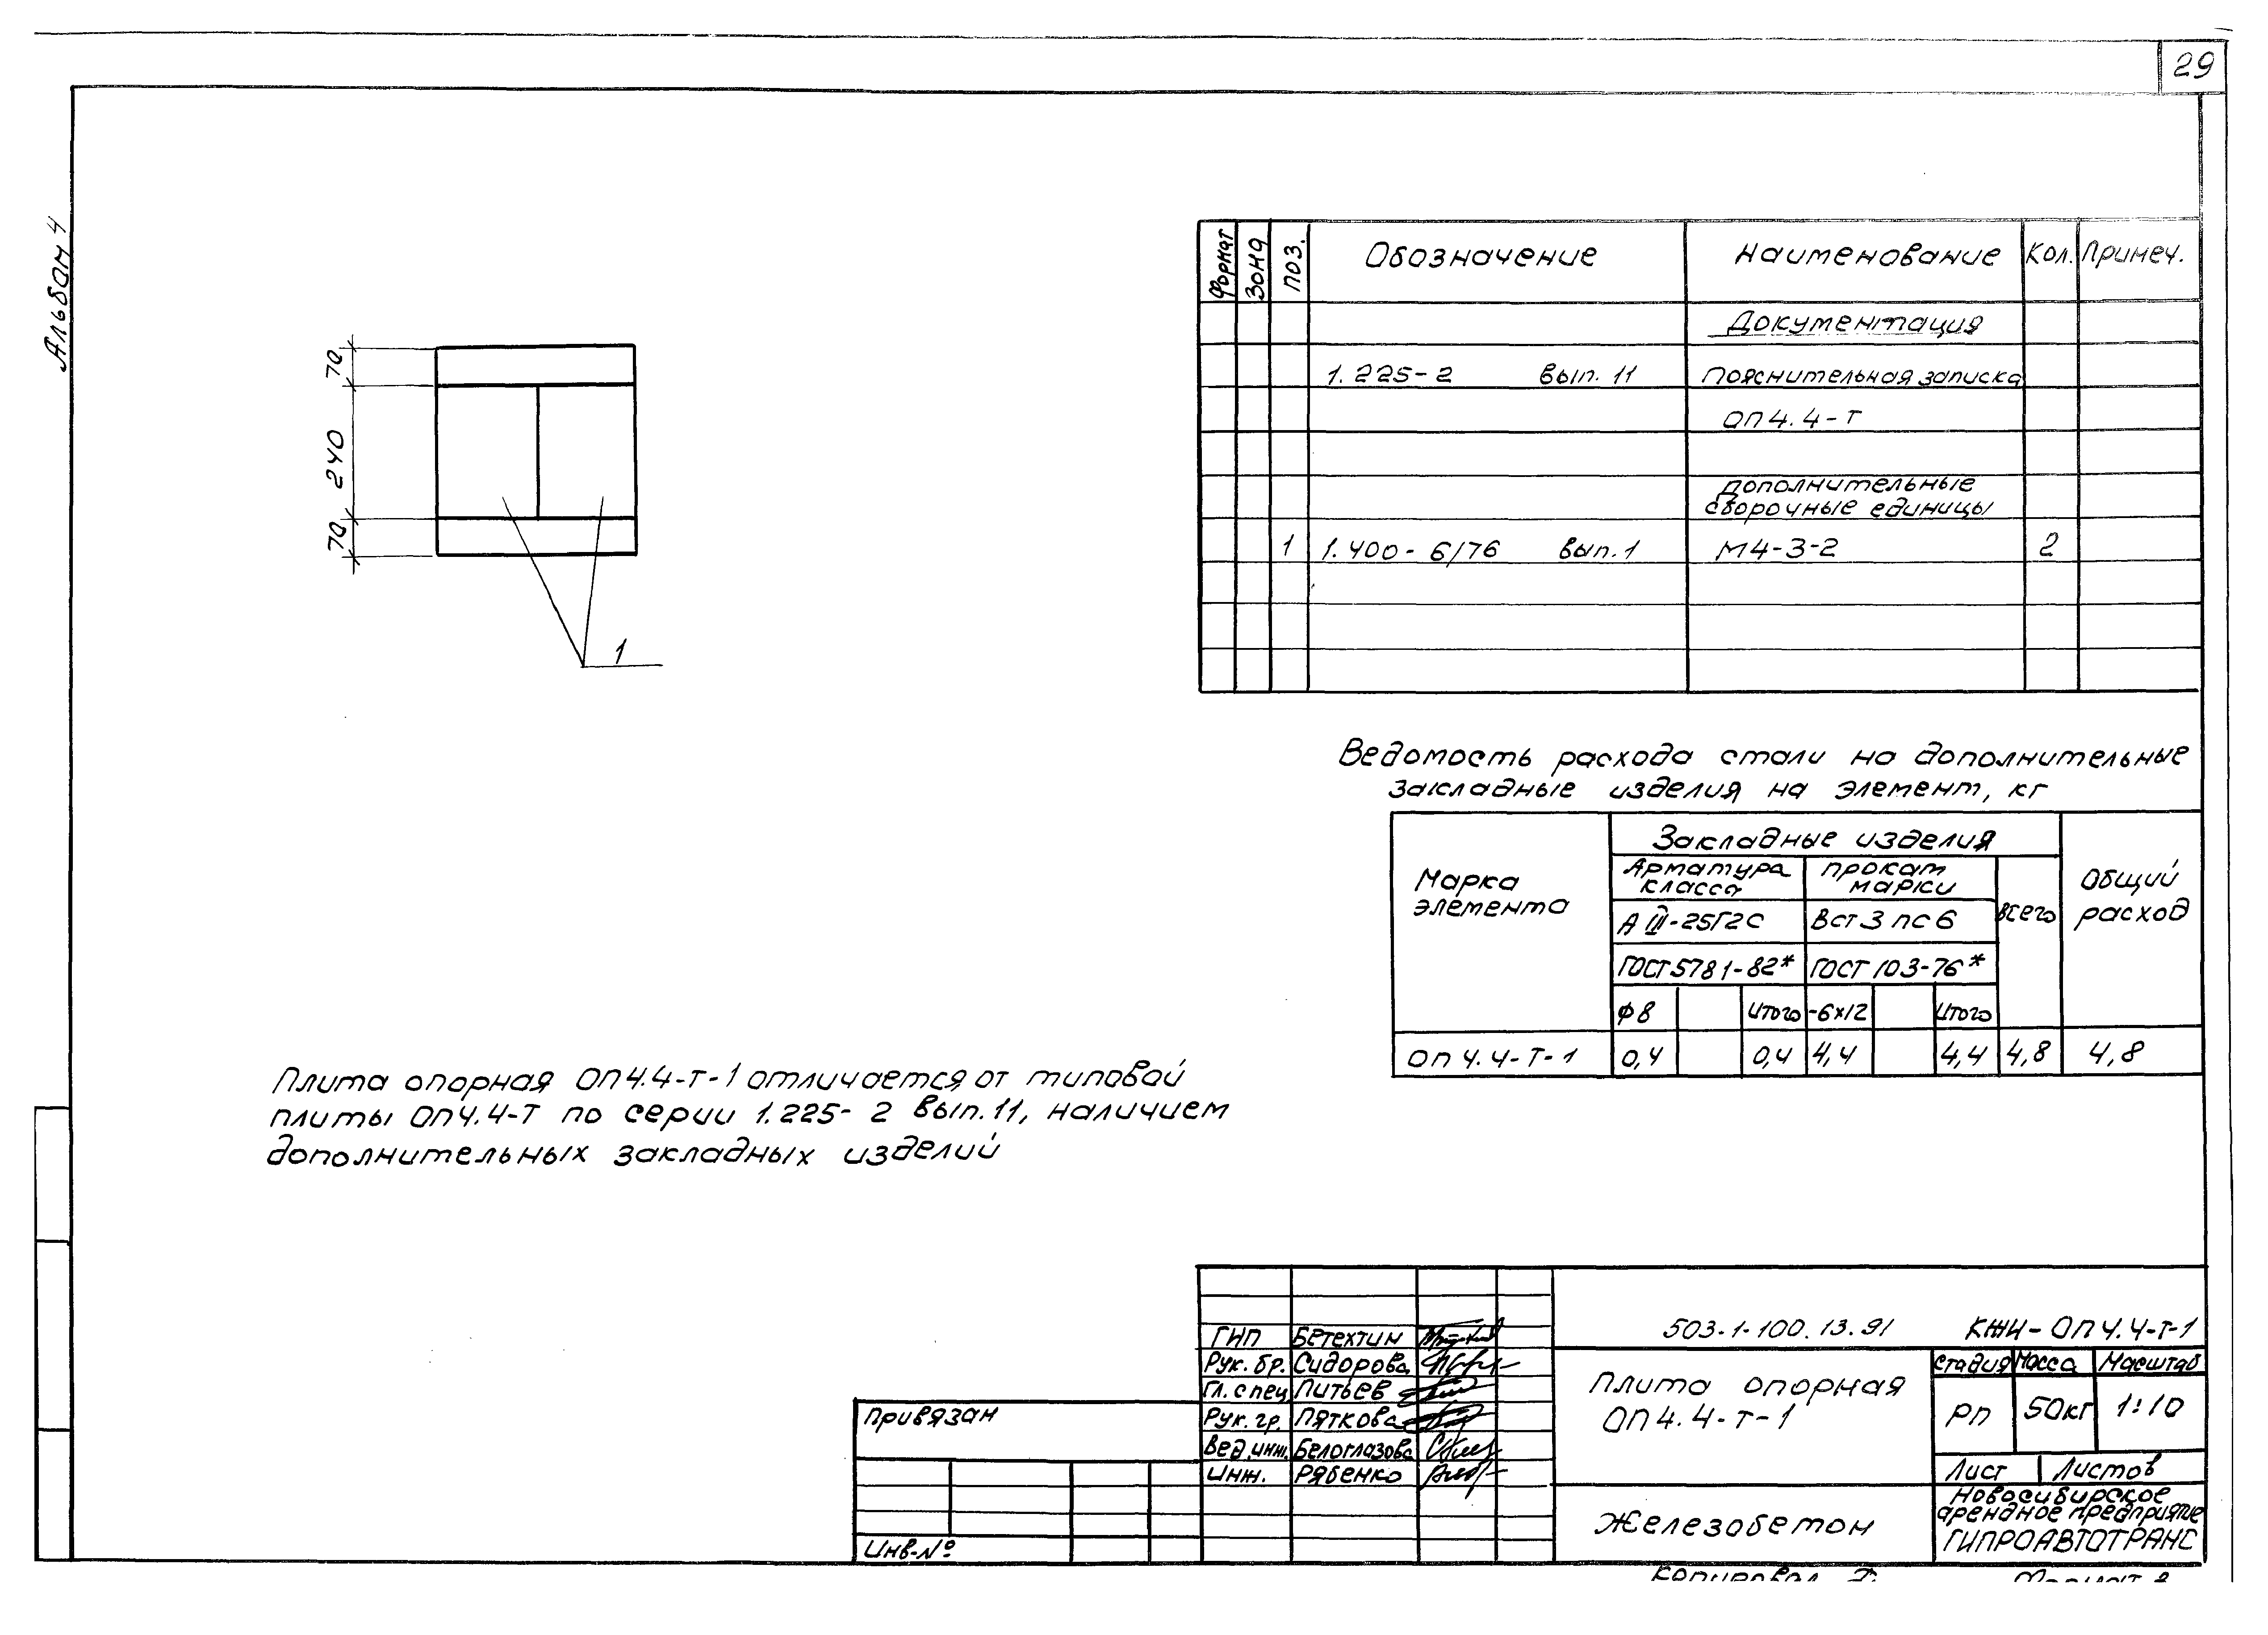 29
Альбом 4
70
240
70
1
Формат Зона Поз. Обозначение Наименование Кол. Примеч.
Документация
1.225-2 вып. 11 Пояснительная записка
ОП4.4-Т
Дополнительные
сборочные единицы
1 1.400-6/76 вып.1 М4-3-2 2
Ведомость расхода стали на дополнительные
закладные изделия на элемент, кг
Марка
элемента
Закладные изделия
Арматура
класса
Прокат
марки
А III-25Г2С
Вст3пс6
ГОСТ5781-82*
ГОСТ103-76*
Всего
Общий
расход
Ф8 Итого -6х12 Итого
ОП4.4-Т-1 0,4 0,4 4,4 4,4 4,8 4,8
Плита опорная ОП4.4-Т-1 отличается от типовой
плиты ОП4.4-Т по серии 1.225-2 вып.11, наличием
дополнительных закладных изделий
Привязан
Инв.№
ГИП Бетехтин
Рук. бр. Сидорова
Гл. спец. Питьев
Рук. гр. Пяткова
Вед. инж. Белоглазова
Инж. Рябенко
503-1-100.13.91 КЖИ-ОП4.4-Т-1
Плита опорная
ОП4.4-Т-1
Стадия Масса Масштаб
РП 50кг 1:10
Лист Листов
Железобетон
Новосибирское
арендное предприятие
ГИПРОАВТОТРАНС
Копировал